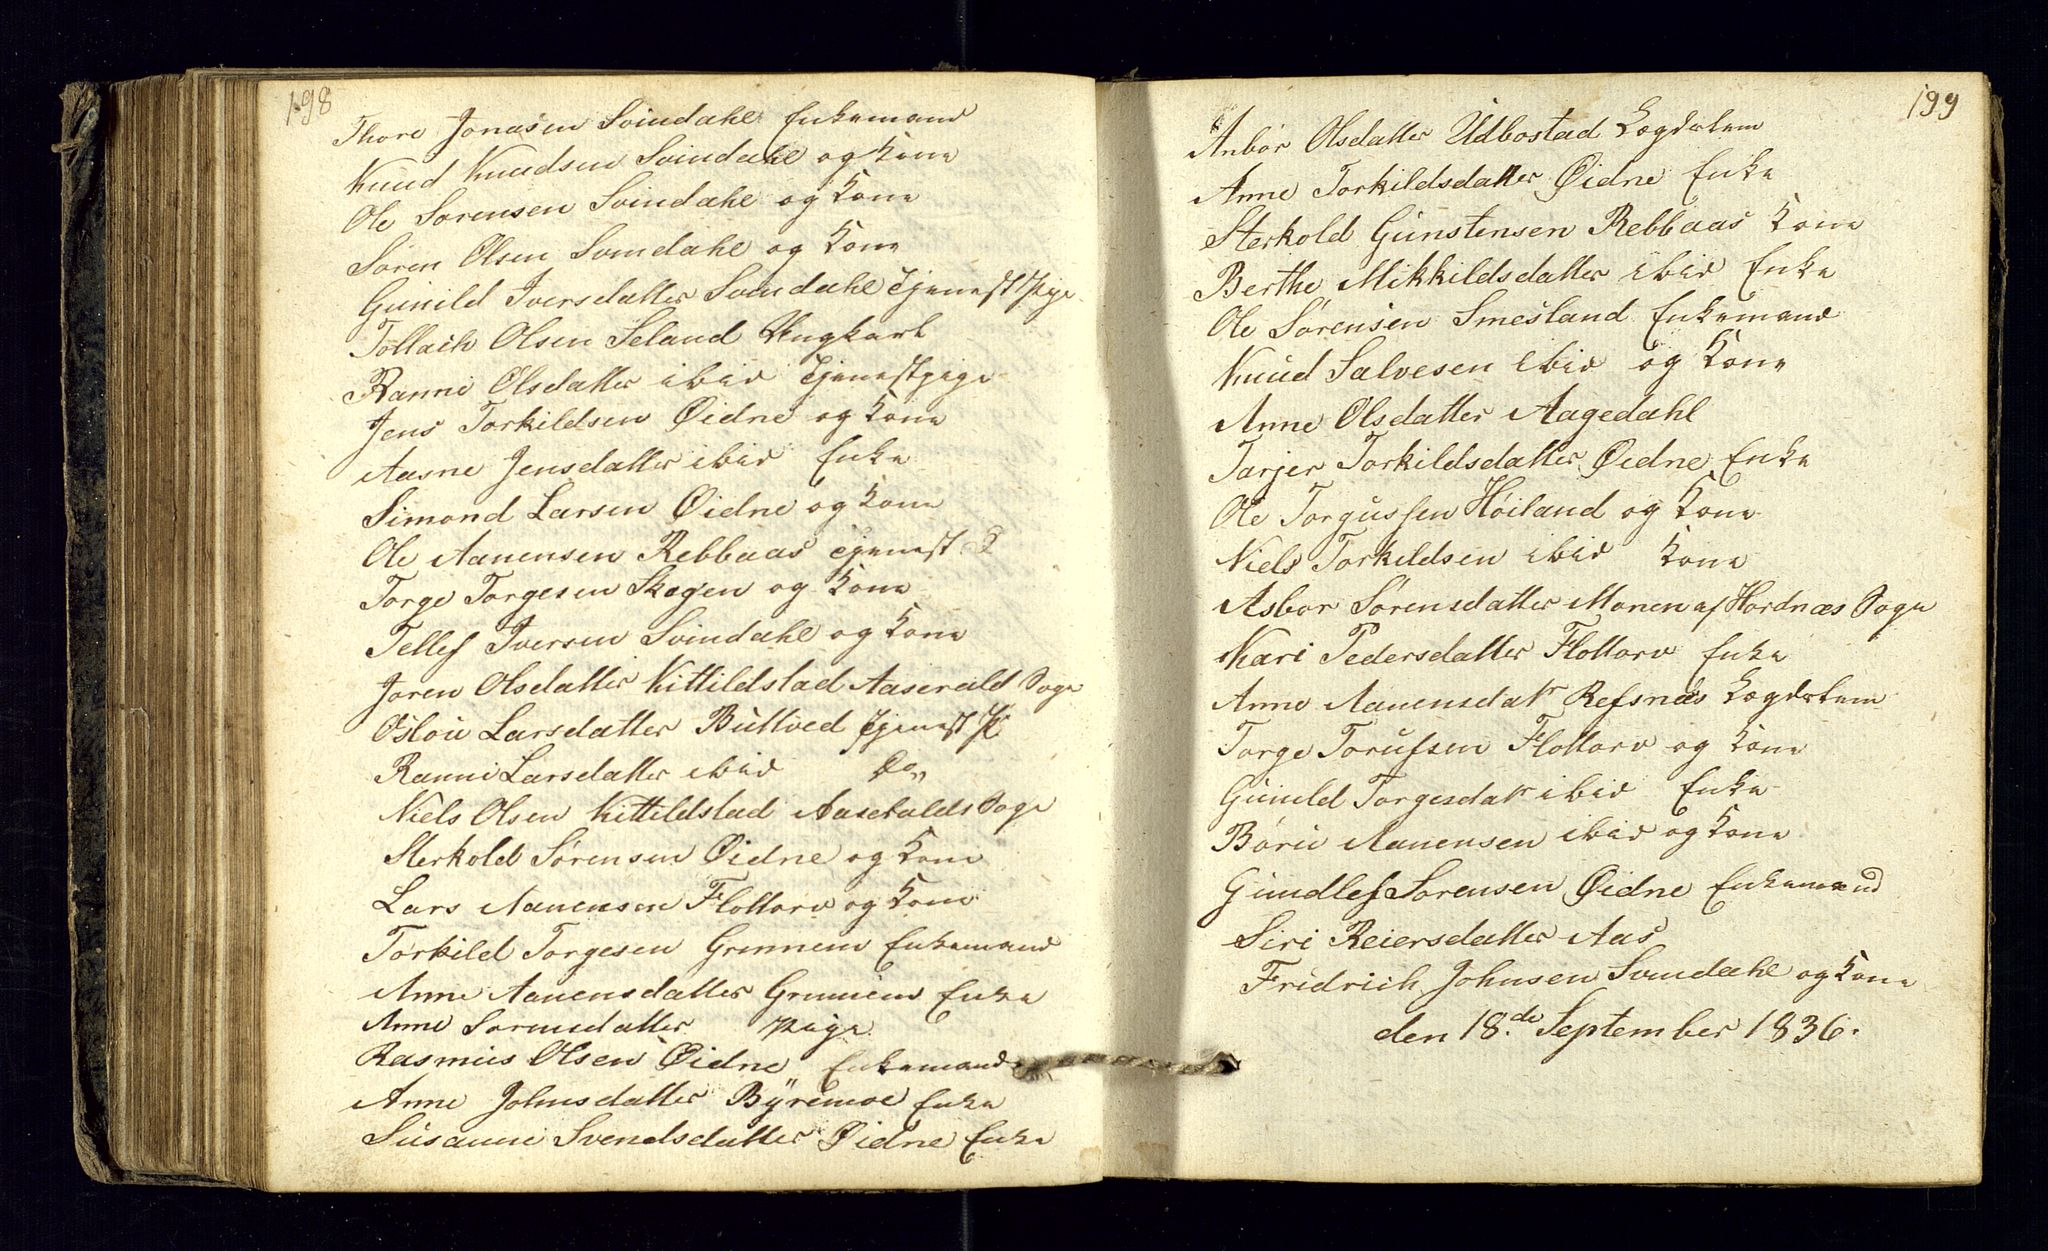 198
Thore Jonasen Svindahl Enkemand
Knud Knudsen Svindahl og Kone
Ole Sorensen Svindahl og Kone
Søren Olsen Svindahl og Kone
Gunild Iversdatter Svindahl Tjenestpige
Tollach Olsen Seland Ungkarl
Ranni Olsdatter ibid Tjenestpige
Jens Torkildsen Øidne og Kone
Aasne Jensdatter ibid Enke
Simond Larsen Øidne og Kone
Ole Aanensen Rebbaas Tjenest
Torge Torgesen Skogen og Kone
Tellef Iversen Svindahl og Kone
Joren Olsdatter Kittildstad Aaserald Sogn
Oslou Larsdatter Bultved Tjenest P
Ranni Larsdatter ibid Do
Niels Olsen Kittildstad Aaseralds Sogn
Sterkold Sørensen Øidne og Kone
Lars Aanensen Flottorv og Kone
Torkild Torgesen Grunnem Enkemand
Anne Aanensdatter Grunnem Enke
Anne Sorensdatter Pige
Rasmus Olsen Øidne Enkemand
Anne Johnsdatter Byremoe Enke
Susanne Svendsdatter Øidne Enke
199
Anbør Olsdatter Udbostad Lægdslem
Anne Torkildsdatter Øidne Enke
Sterkold Gunstensen Rebbaas Kone
Berthe Mikkildsdatter ibid Enke
Ole Sørensen Smesland Enkemand
Knud Salvesen ibid og Kone
Anne Olsdatter Aagedahl
Tarjer Torkildsdatter Øidne Enke
Ole Torgussen Høiland og Kone
Niels Torkildsen ibid Kone
Asbor Sørensdatter Monen af Hordnæs Sogn
Kari Pedersdatter Flottorv Enke
Anne Aanensdatr Refsnæs Lægdslem
Torge Torufsen Flottorv og Kone
Gunild Torgesdatr ibid Enke
Børu Aanensen ibid og Kone
Gundlef Sorensen Øidne Enkemand
Siri Reiersdatter Aas
Fridrich Johnsen Svindahl og Kone
den 18de September 1836.